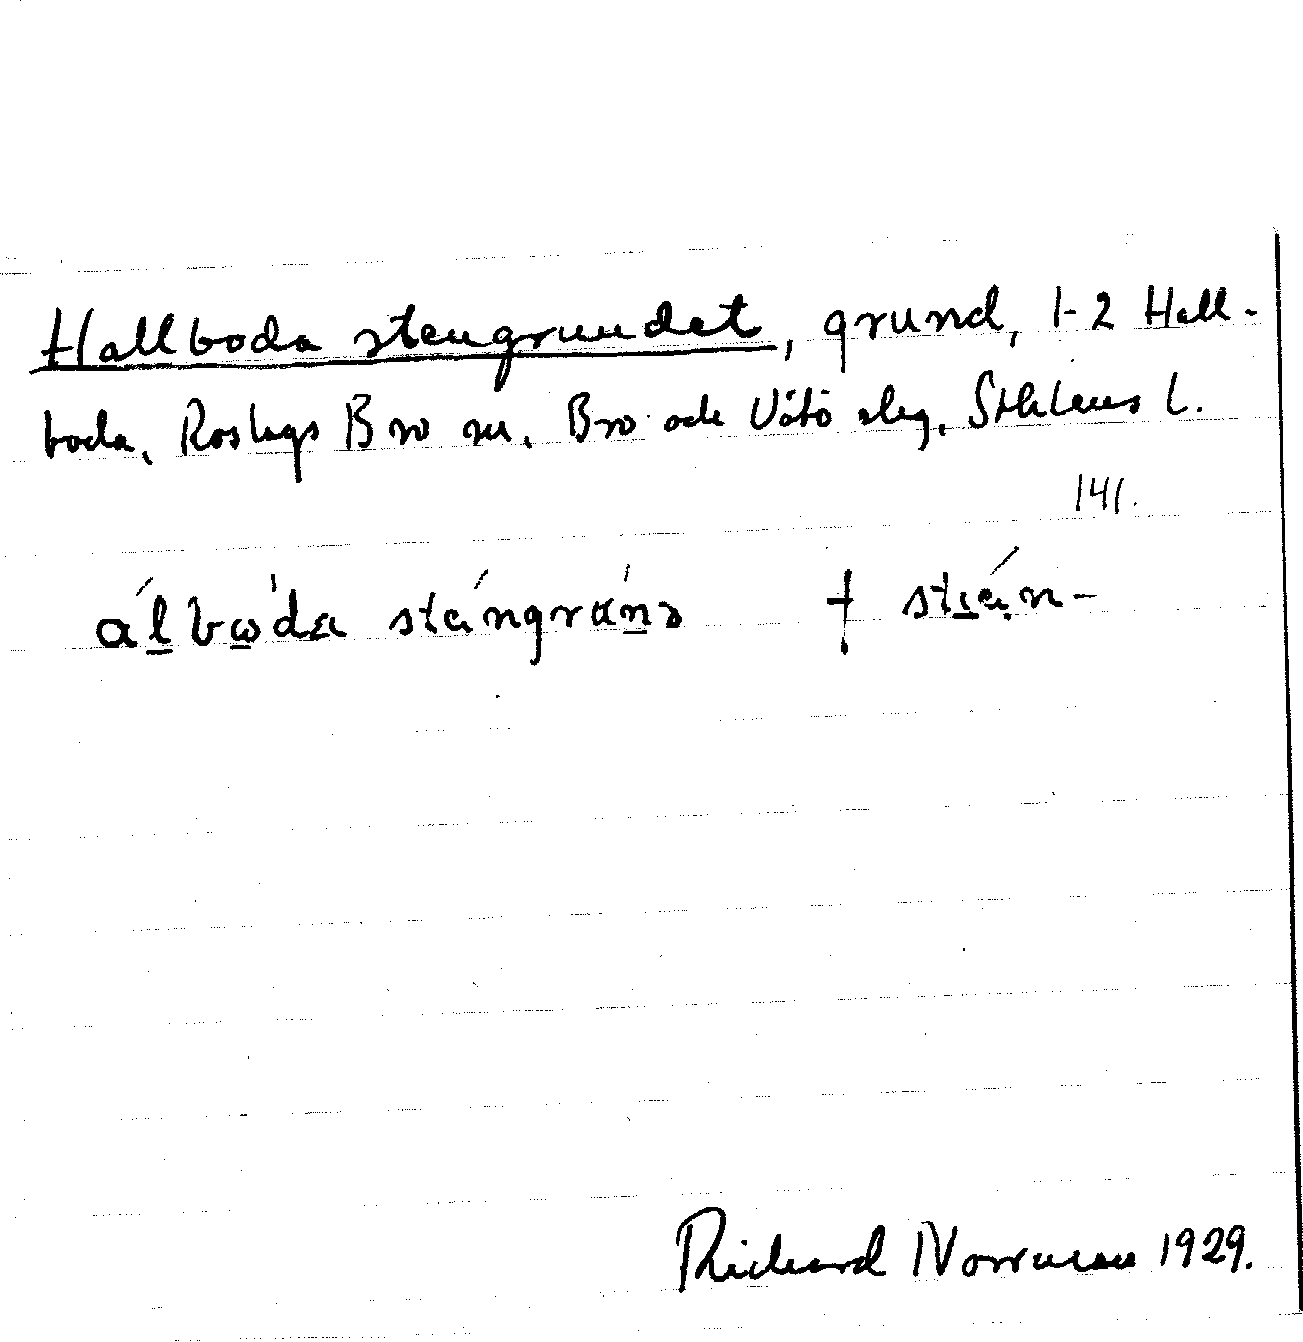 Hallboda stengrundet, grund, 1-2 Hall-
boda, Roslags Bro sn, Bro och Vätö slg, Sthlms l.
141.
álbωda sténgránə † stién-
Richard Norrman 1929.